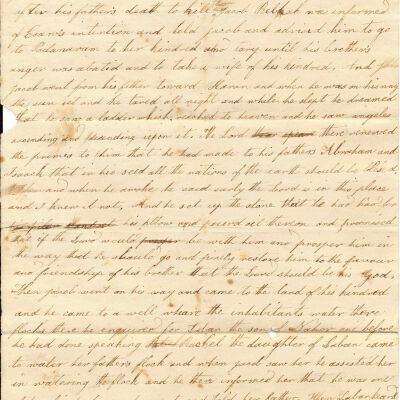 after his father's death to kill Jacob Bekah was informed
of Esau's intention and told Jacob and advised him to go
to Padanaram to her kindred and tary until his brother's
anger was abatid and to take a wife of his kindred, And
Jacob went from his father toward Haran and when he was on his way
the sun set and he taried all night and while he slept he dreamed
that he saw a ladder which reached to heaven and he saw angeles
ascending and desending upon it. The Lord there renewed
the promes to him that he had made to his fathers Abraham and
Isaach that in his seed all the nations of the earth should be
and when he awoke he said surly the Lord is in this place
and I knew it not, And he set up the stone that he had had for
his pillow and pourd oil thereon and promised
that if the Lord would be with him and prosper him in
the way that he should go and restore him to the favour
and friendship of his brother that the Lord should be his God,
Then Jacob went on his way and came to the land of his kindred
and he came to a well whare the inhabitants water there
flocks there he enquired for Laban the son of Nahor and before
he had done speaking Rachel the daughter of Laban came
to water her father's flock and when Jacob saw her he assisted her
in watering the flock and he then informed her that he was
told her father. Then Laban heard